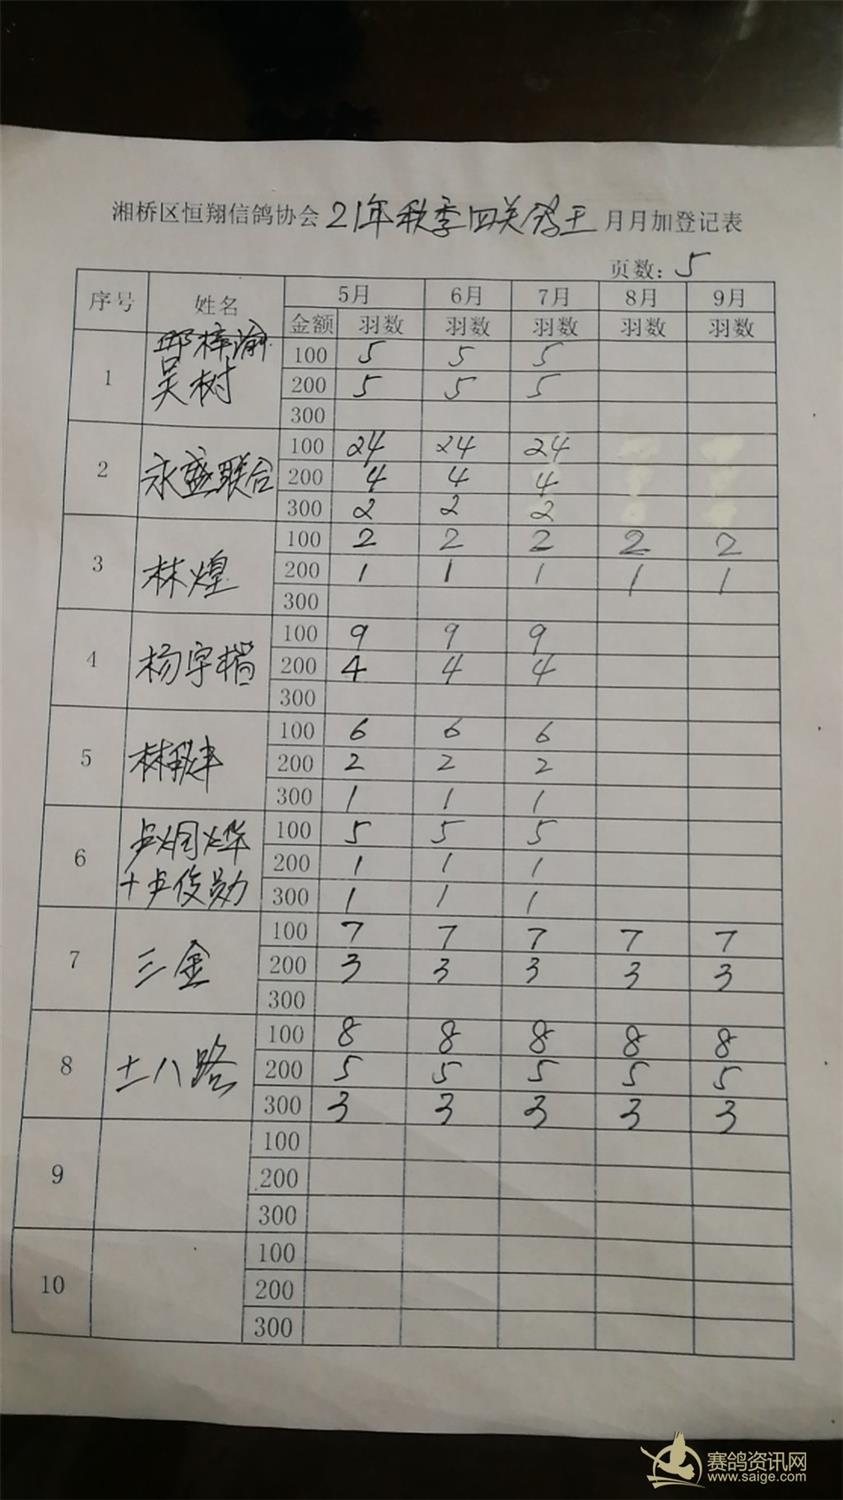 湘桥区恒翔信鸽协会 21年秋季四关鸽王 月月加登记表
页数: 5
序号 姓名 5月 6月 7月 8月 9月
金额 羽数 羽数 羽数 羽数 羽数
邱梓渝
吴树
1
100 5 5 5
200 5 5 5
300
2 永盛联合
100 24 24 24
200 4 4 4
300 2 2 2
3 林煌
100 2 2 2 2 2
200 1 1 1 1 1
300
4 杨宇楷
100 9 9 9
200 4 4 4
300
5 林
100 6 6 6
200 2 2 2
300 1 1 1
6 卢炯烨
+卢俊勋
100 5 5 5
200 1 1 1
300 1 1 1
7 三金
100 7 7 7 7 7
200 3 3 3 3 3
300
8 土八路
100 8 8 8 8 8
200 5 5 5 5 5
300 3 3 3 3 3
9
100
200
300
10
100
200
300
赛鸽资讯网
www.saige.com